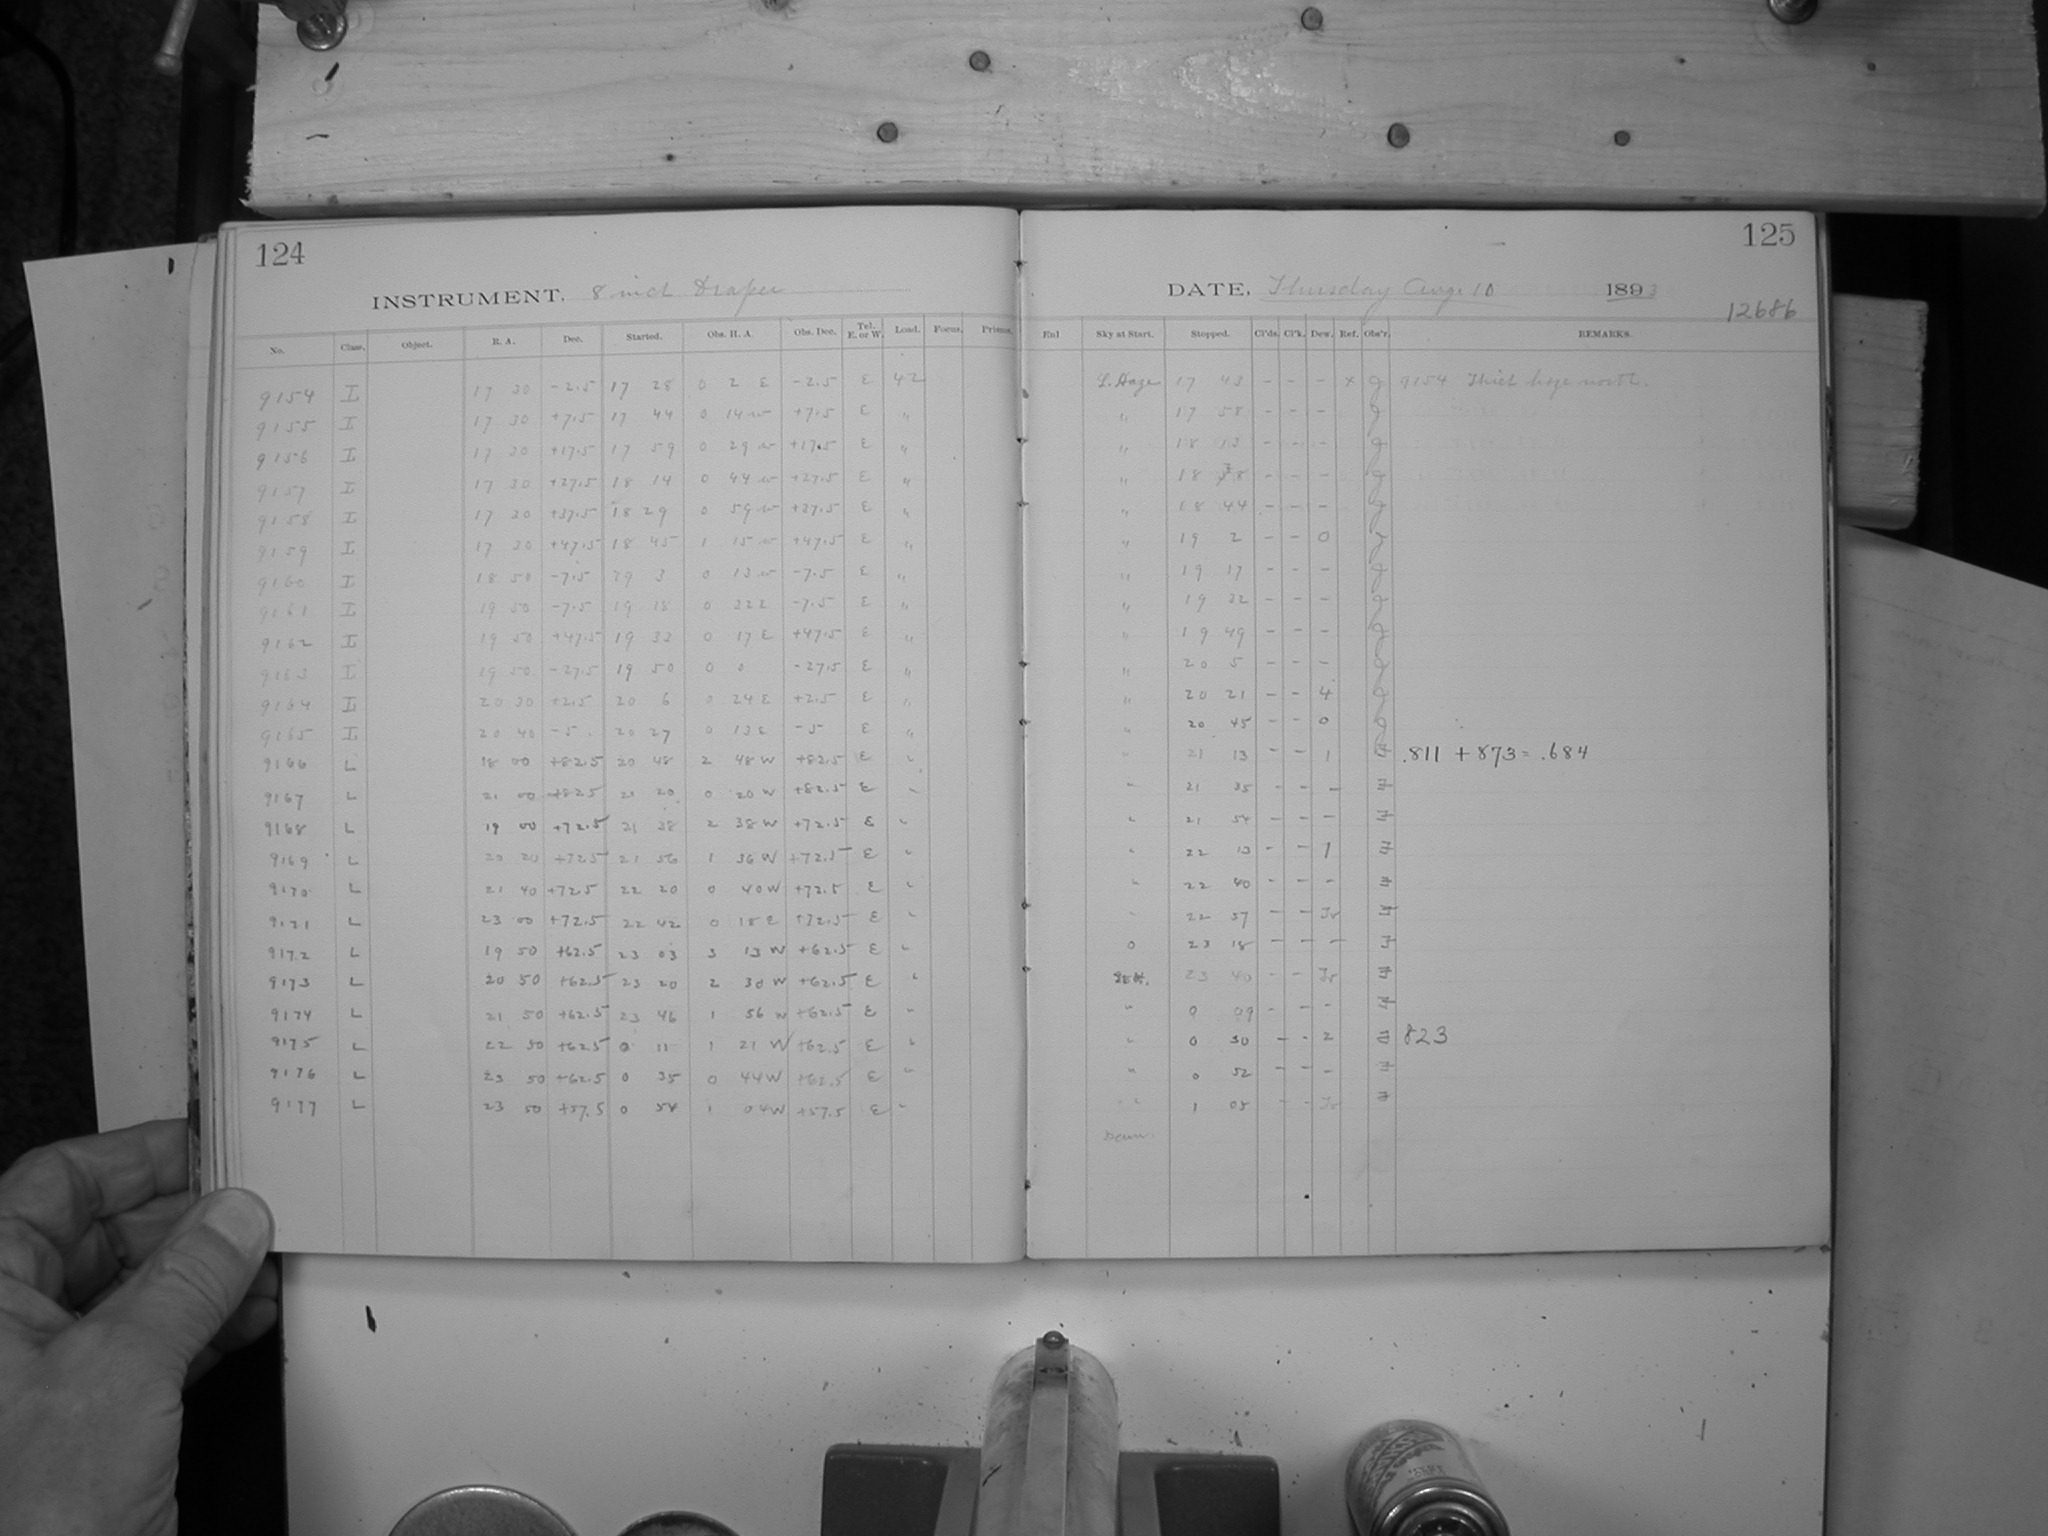 124
INSTRUMENT, 8 inch Draper
No. Class. Object. R. A. Dec. Started. Obs. H. A. Obs. Dec. Tel. E. or W. Load. Focus. Prisms.
9154 I 17 30 -2.5 17 28 0 2 E -2.5 E 42
9155 I 17 30 +7.5 17 44 0 14 W +7.5 E "
9156 I 17 30 +17.5 17 59 0 29 W +17.5 E "
9157 I 17 30 +27.5 18 14 0 44 W +27.5 E "
9158 I 17 30 +37.5 18 29 0 59 W +37.5 E "
9159 I 17 30 +47.5 18 45 1 15 W +47.5 E "
9160 I 18 50 -7.5 19 3 0 13 W -7.5 E "
9161 I 19 50 -7.5 19 18 0 32 E -7.5 E "
9162 I 19 50 +47.5 19 33 0 17 E +47.5 E "
9163 I 19 50 -27.5 19 50 0 0 -27.5 E "
9164 I 20 30 +2.5 20 6 0 24 E +2.5 E "
9165 I 20 40 -5 20 27 0 13 E -5 E "
9166 L 18 00 +82.5 20 48 2 48 W +82.5 E "
9167 L 21 00 +82.5 21 20 0 20 W +82.5 E "
9168 L 19 00 +72.5 21 38 2 38 W +72.5 E "
9169 L 20 20 +72.5 21 56 1 36 W +72.5 E "
9170 L 21 40 +72.5 22 20 0 40 W +72.5 E "
9171 L 23 00 +72.5 22 42 0 18 E +72.5 E "
9172 L 19 50 +62.5 23 03 3 13 W +62.5 E "
9173 L 20 50 +62.5 23 20 2 30 W +62.5 E "
9174 L 21 50 +62.5 23 46 1 56 W +62.5 E "
9175 L 22 50 +62.5 0 11 1 21 W +62.5 E "
9176 L 23 50 +62.5 0 35 0 44 W +62.5 E "
9177 L 23 50 +57.5 0 54 1 04 W +57.5 E "
125
DATE, Thursday Aug. 10 1893
12686
Enl Sky at Start. Stopped. Cl'ds. Cl'k. Dew. Ref. Obs'r. REMARKS.
L. Haze 17 43 - - - x g 9154 Thick haze north.
" 17 58 - - - g
" 18 13 - - - g
" 18 28 - - - g
" 18 44 - - - g
" 19 2 - - 0 g
" 19 17 - - - g
" 19 32 - - - g
" 19 49 - - - g
" 20 5 - - - g
" 20 21 - - 4 g
" 20 45 - - 0 g
" 21 13 - - 1 .811 + 873 = .684
" 21 35 - - -
" 21 54 - - -
" 22 13 - - 1
" 22 40 - - -
" 22 57 - - Tr
0 23 18 - - -
23 40 - - Tr
" 0 09 - - -
" 0 30 - - 2 823
" 0 52 - - -
1 05 - - Tr
Dawn.